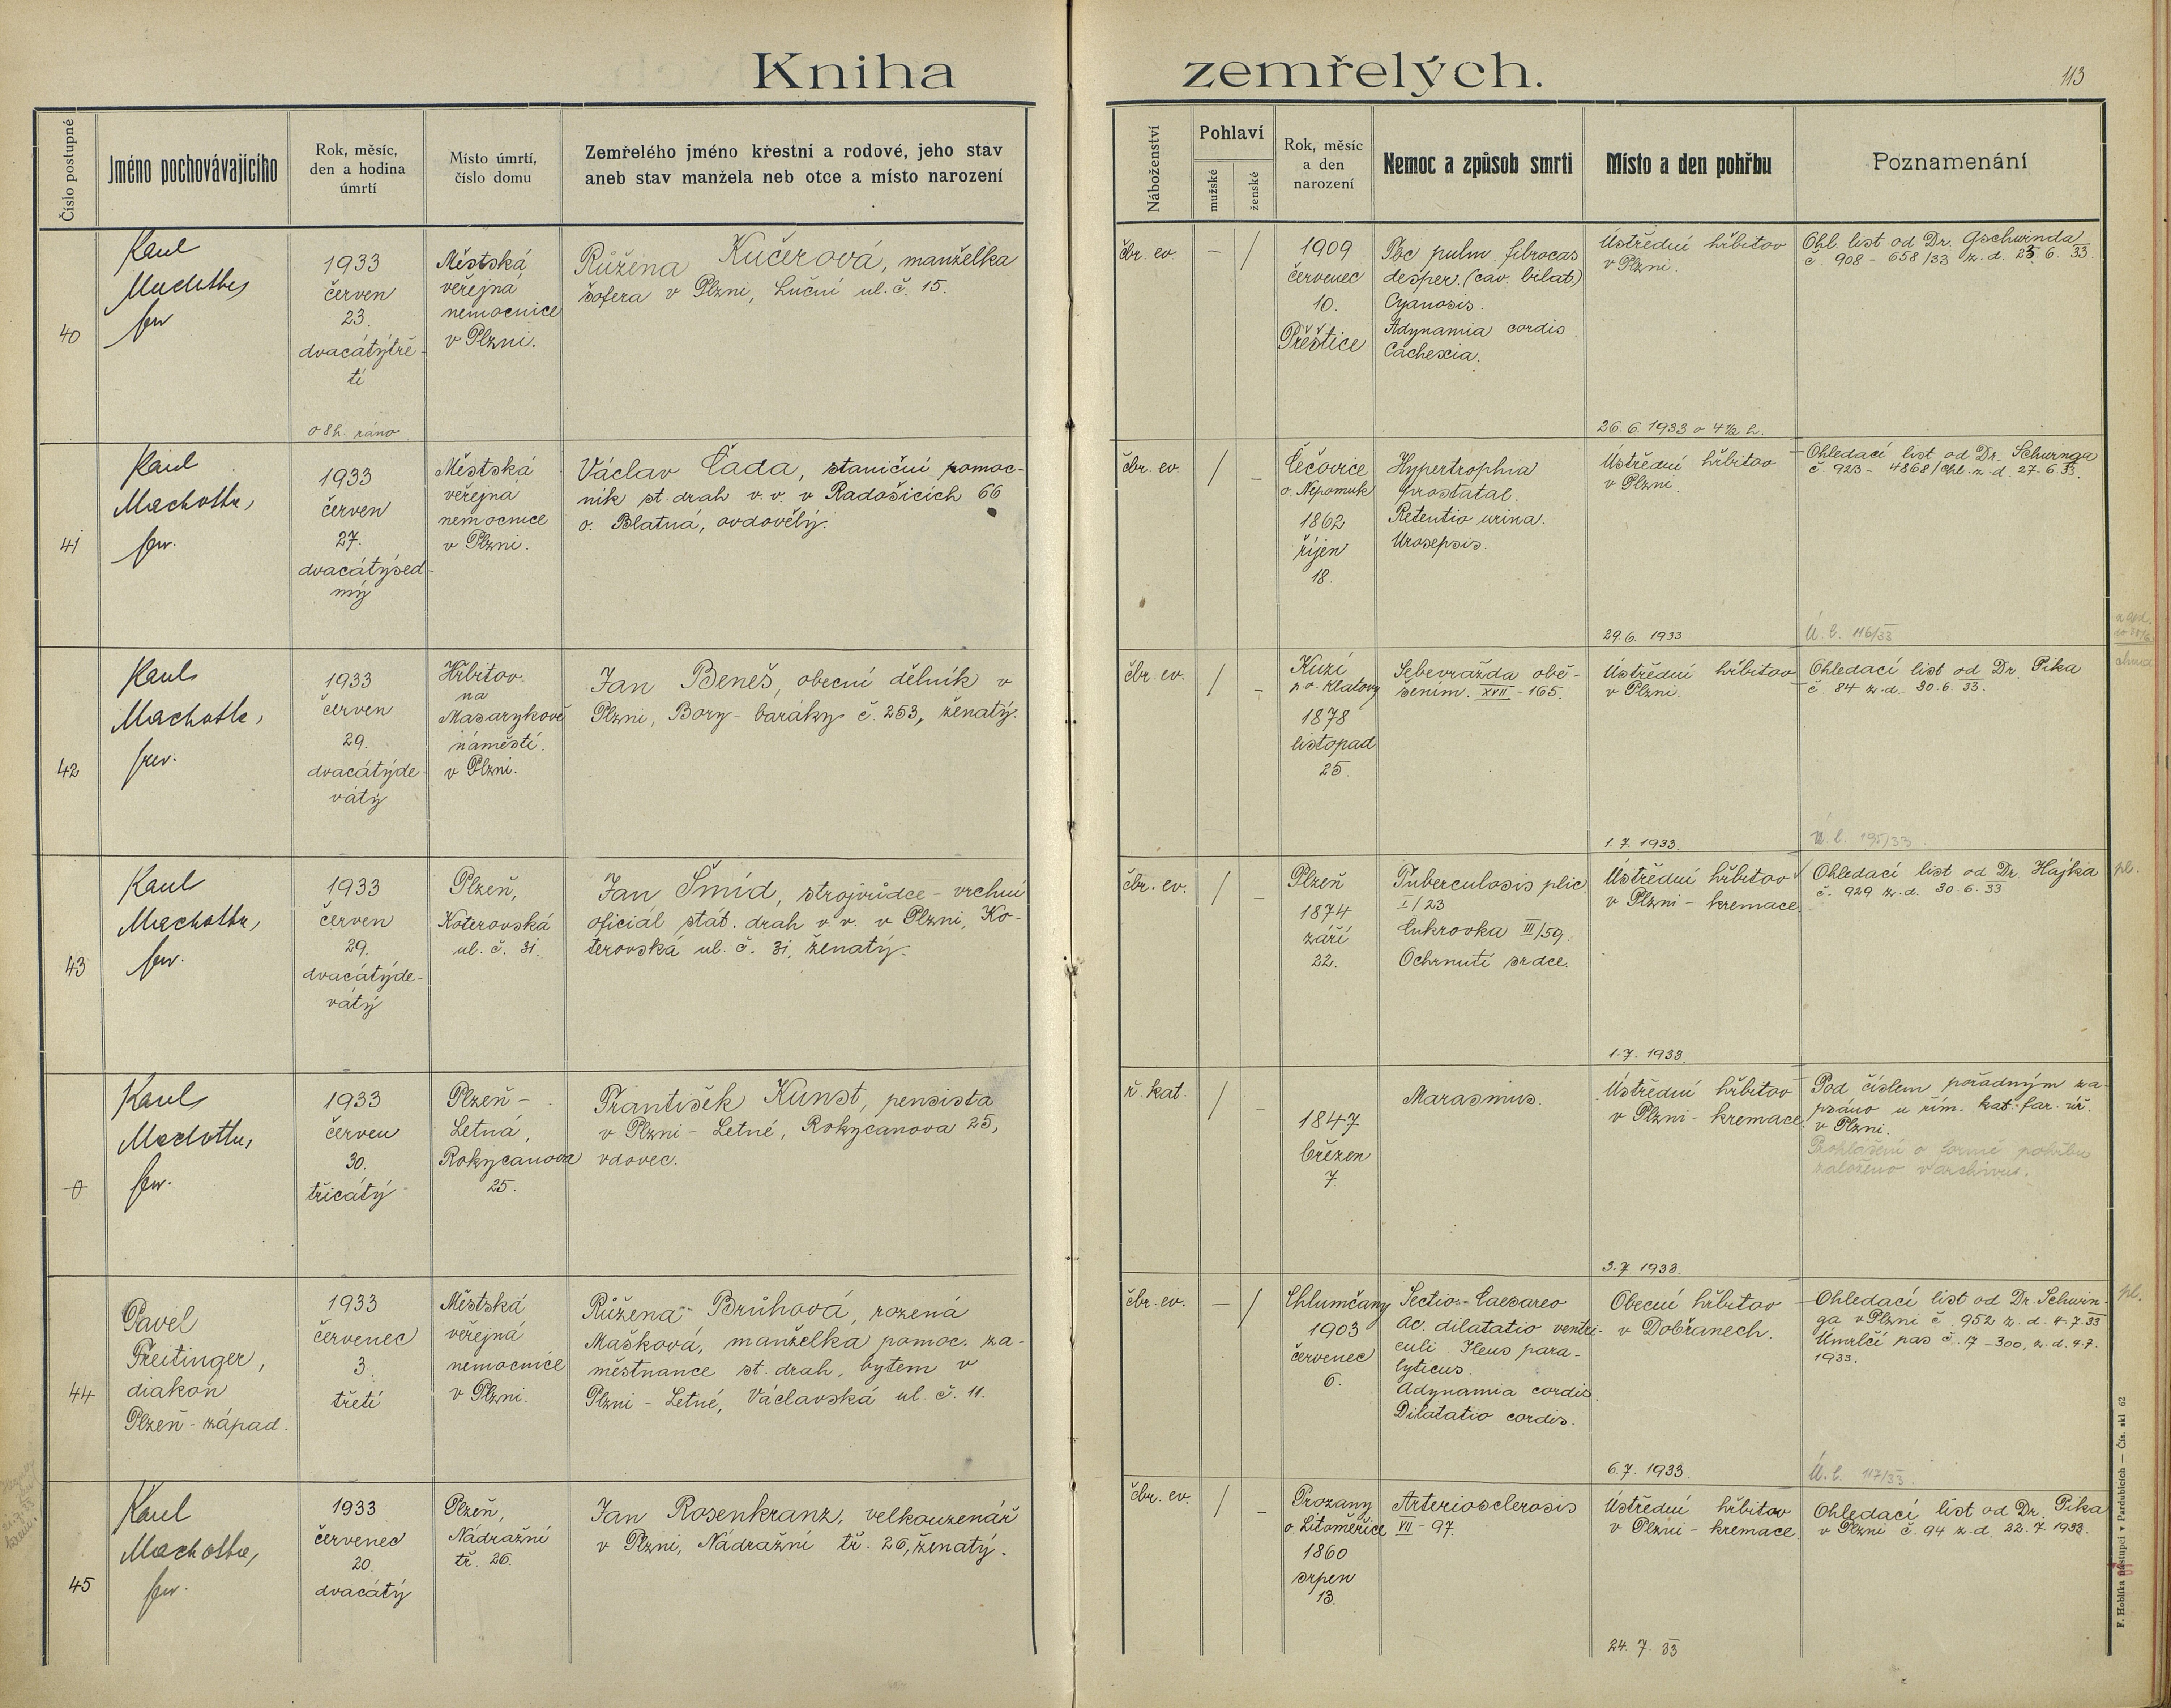 Kniha zemřelých.
113
Číslo postupné
Jméno pochovávajícího
Rok, měsíc,
den a hodina
úmrtí
Místo úmrtí,
číslo domu
Zemřelého jméno křestní a rodové, jeho stav
aneb stav manžela neb otce a místo narození
Náboženství
Pohlaví
mužské
ženské
Rok, měsíc
a den
narození
Nemoc a způsob smrti
Místo a den pohřbu
Poznamenání
40
Karel
1933
červen
23.
dvacátýtře-
tí
o 8 h. ráno
Městská
veřejná
nemocnice
v Plzni.
Růžena Kučerová, manželka
šofera v Plzni, Luční ul. č. 15.
čbr. ev.
– /
1909
červenec
10.
Přeštice
Tbc pulm. fibrocas
desper. (cav. bilat.)
Cyanosis.
Adynamia cordis
Cachexia.
Ústřední hřbitov
v Plzni.
26. 6. 1933 o 4 1/2 h.
Ohl. list od Dr. Gschwinda
č. 908 - 658/33 z. d. 23. 6. 33.
41
Karel
Machotka,
1933
červen
27.
dvacátýsed-
mý
Městská
veřejná
nemocnice
v Plzni.
Václav Čada, staniční pomoc-
ník st. drah v. v. v Radošicích 66
o. Blatná, ovdovělý.
čbr. ev.
/ –
Čečovice
o. Nepomuk
1862
říjen
18.
Hypertrophia
prostatal.
Retentio urina.
Urosepsis.
Ústřední hřbitov
v Plzni.
29. 6. 1933
Ohledací list od Dr. Schwinga
č. 923 - 4868/Chl. z. d. 27. 6. 33.
Ú. l. 116/33
42
Karel
Machotka,
1933
červen
29.
dvacátýde-
vátý
Hřbitov
na
Masarykově
náměstí.
v Plzni.
Jan Beneš, obecní dělník v
Plzni, Bory - baráky č. 253, ženatý.
čbr. ev.
/ –
Kuzí
p. o. Klatovy
1878
listopad
25.
Sebevražda obě-
šením. XVII - 165.
Ústřední hřbitov
v Plzni.
1. 7. 1933.
Ohledací list od Dr. Pika
č. 84 z. d. 30. 6. 33.
ú. l. 195/33
43
Karel
Machotka,
1933
červen
29.
dvacátýde-
vátý
Plzeň,
Koterovská
ul. č. 31.
Jan Šmíd, strojvůdce - vrchní
oficiál stát. drah v. v. v Plzni, Ko-
terovská ul. č. 31, ženatý.
čbr. ev.
/ –
Plzeň
1874
září
22.
Tuberculosis plic
I/23
Cukrovka III/59.
Ochrnutí srdce.
Ústřední hřbitov
v Plzni - kremace.
1. 7. 1933.
Ohledací list od Dr. Hájka
č. 929 z. d. 30. 6. 33
pl.
0
Karel
Machotka,
1933
červen
30.
třicátý
Plzeň -
Letná,
Rokycanova
25.
František Kunst, pensista
v Plzni - Letné, Rokycanova 25,
vdovec.
ř. kat.
/ –
1847
březen
7.
Marasmus.
Ústřední hřbitov
v Plzni - kremace.
3. 7. 1933.
Pod číslem pořadným za-
psáno u řím. kat. far. úř.
v Plzni.
Prohlášení o formě pohřbu
založeno v archivu.
44
Pavel
Freitinger,
diakon
Plzeň - západ.
1933
červenec
3.
třetí
Městská
veřejná
nemocnice
v Plzni.
Růžena Brůhová, rozená
Mašková, manželka pomoc. za-
městnance st. drah, bytem v
Plzni - Letné, Václavská ul. č. 11.
čbr. ev.
– /
Chlumčany
1903
červenec
6.
Sectio - Caesareo
Ac. dilatatio ventri-
culi. Ileus para-
lyticus.
Adynamia cordis.
Dilatatio cordis.
Obecní hřbitov
v Dobřanech.
6. 7. 1933.
Ohledací list od Dr. Schwin-
ga v Plzni č. 952 z. d. 4. 7. 33
Úmrlčí pas č. 17 - 300, z. d. 4. 7.
1933.
Ú. l. 117/33.
pl.
45
Karel
Machotka,
1933
červenec
20.
dvacátý
Plzeň,
Nádražní
tř. 26.
Jan Rosenkranz, velkouzenář
v Plzni, Nádražní tř. 26, ženatý.
čbr. ev.
/ –
Prozany
o. Litoměřice
1860
srpen
13.
Arteriosclerosis
VII - 97.
Ústřední hřbitov
v Plzni - kremace.
24. 7. 33
Ohledací list od Dr. Pika
v Plzni č. 94 z. d. 22. 7. 1933.
F. Hoblíka nástupci v Pardubicích — Čís. skl. 62